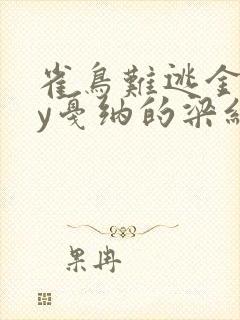 雀鳥難逃金
y戛纳的梁
果冉